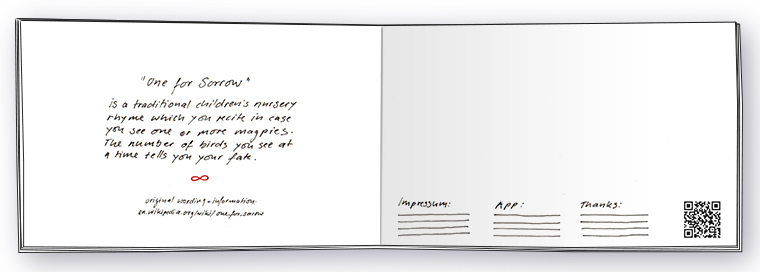 "One for Sorrow"
is a traditional children's nursery
rhyme which you recite in case
you see one or more magpies.
The number of birds you see at
a time tells you your fate.
original wording + information
en.wikipedia.org/wiki/one.for.sorrow
Impressum:
App:
Thanks: